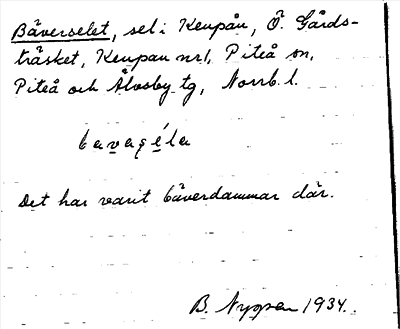 Bäverselet, sel i Keupån, Ö. Gårds-
träsket, Keupan nr 1, Piteå sn,
Piteå och Älvsby tg, Norrb. l.
bavaséla
Det har varit bäverdammar där.
B. Nygren 1934.